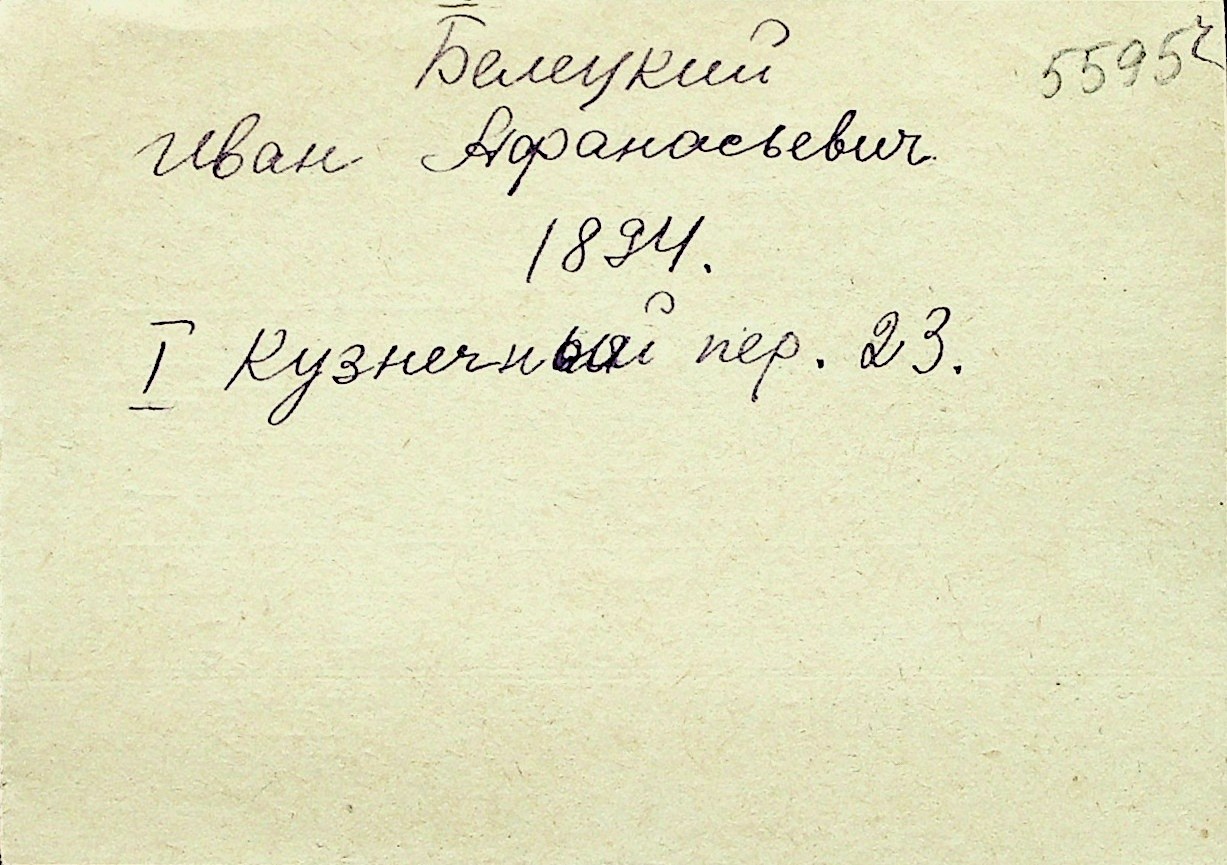 Белецкий
Иван Афанасьевич
1894.
I Кузнечный пер. 23.